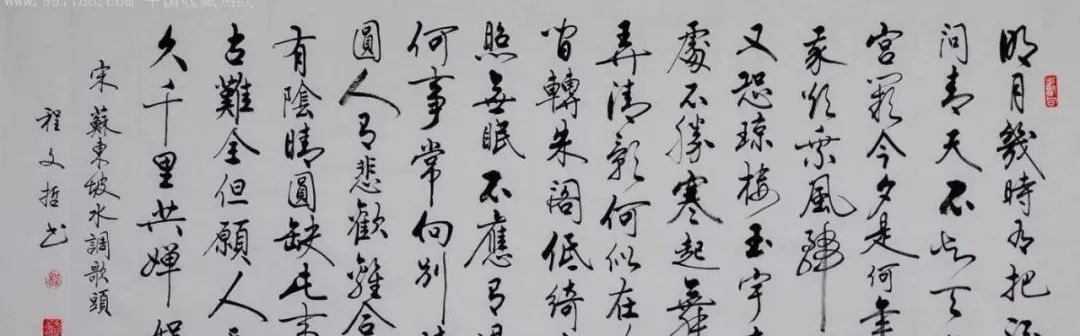 www.997788.com 中国收藏热线
明月幾時有把
問青天不知天
宮闕今夕是何年
我欲乘風歸
又恐瓊樓玉宇
處不勝寒起舞
弄清影何似在
間轉朱閣低綺
照無眠不應有
何事常向別
圓人有悲歡離合
有陰晴圓缺此事
古難全但願人
久千里共嬋
宋 蘇東坡水調歌頭
程文哲书